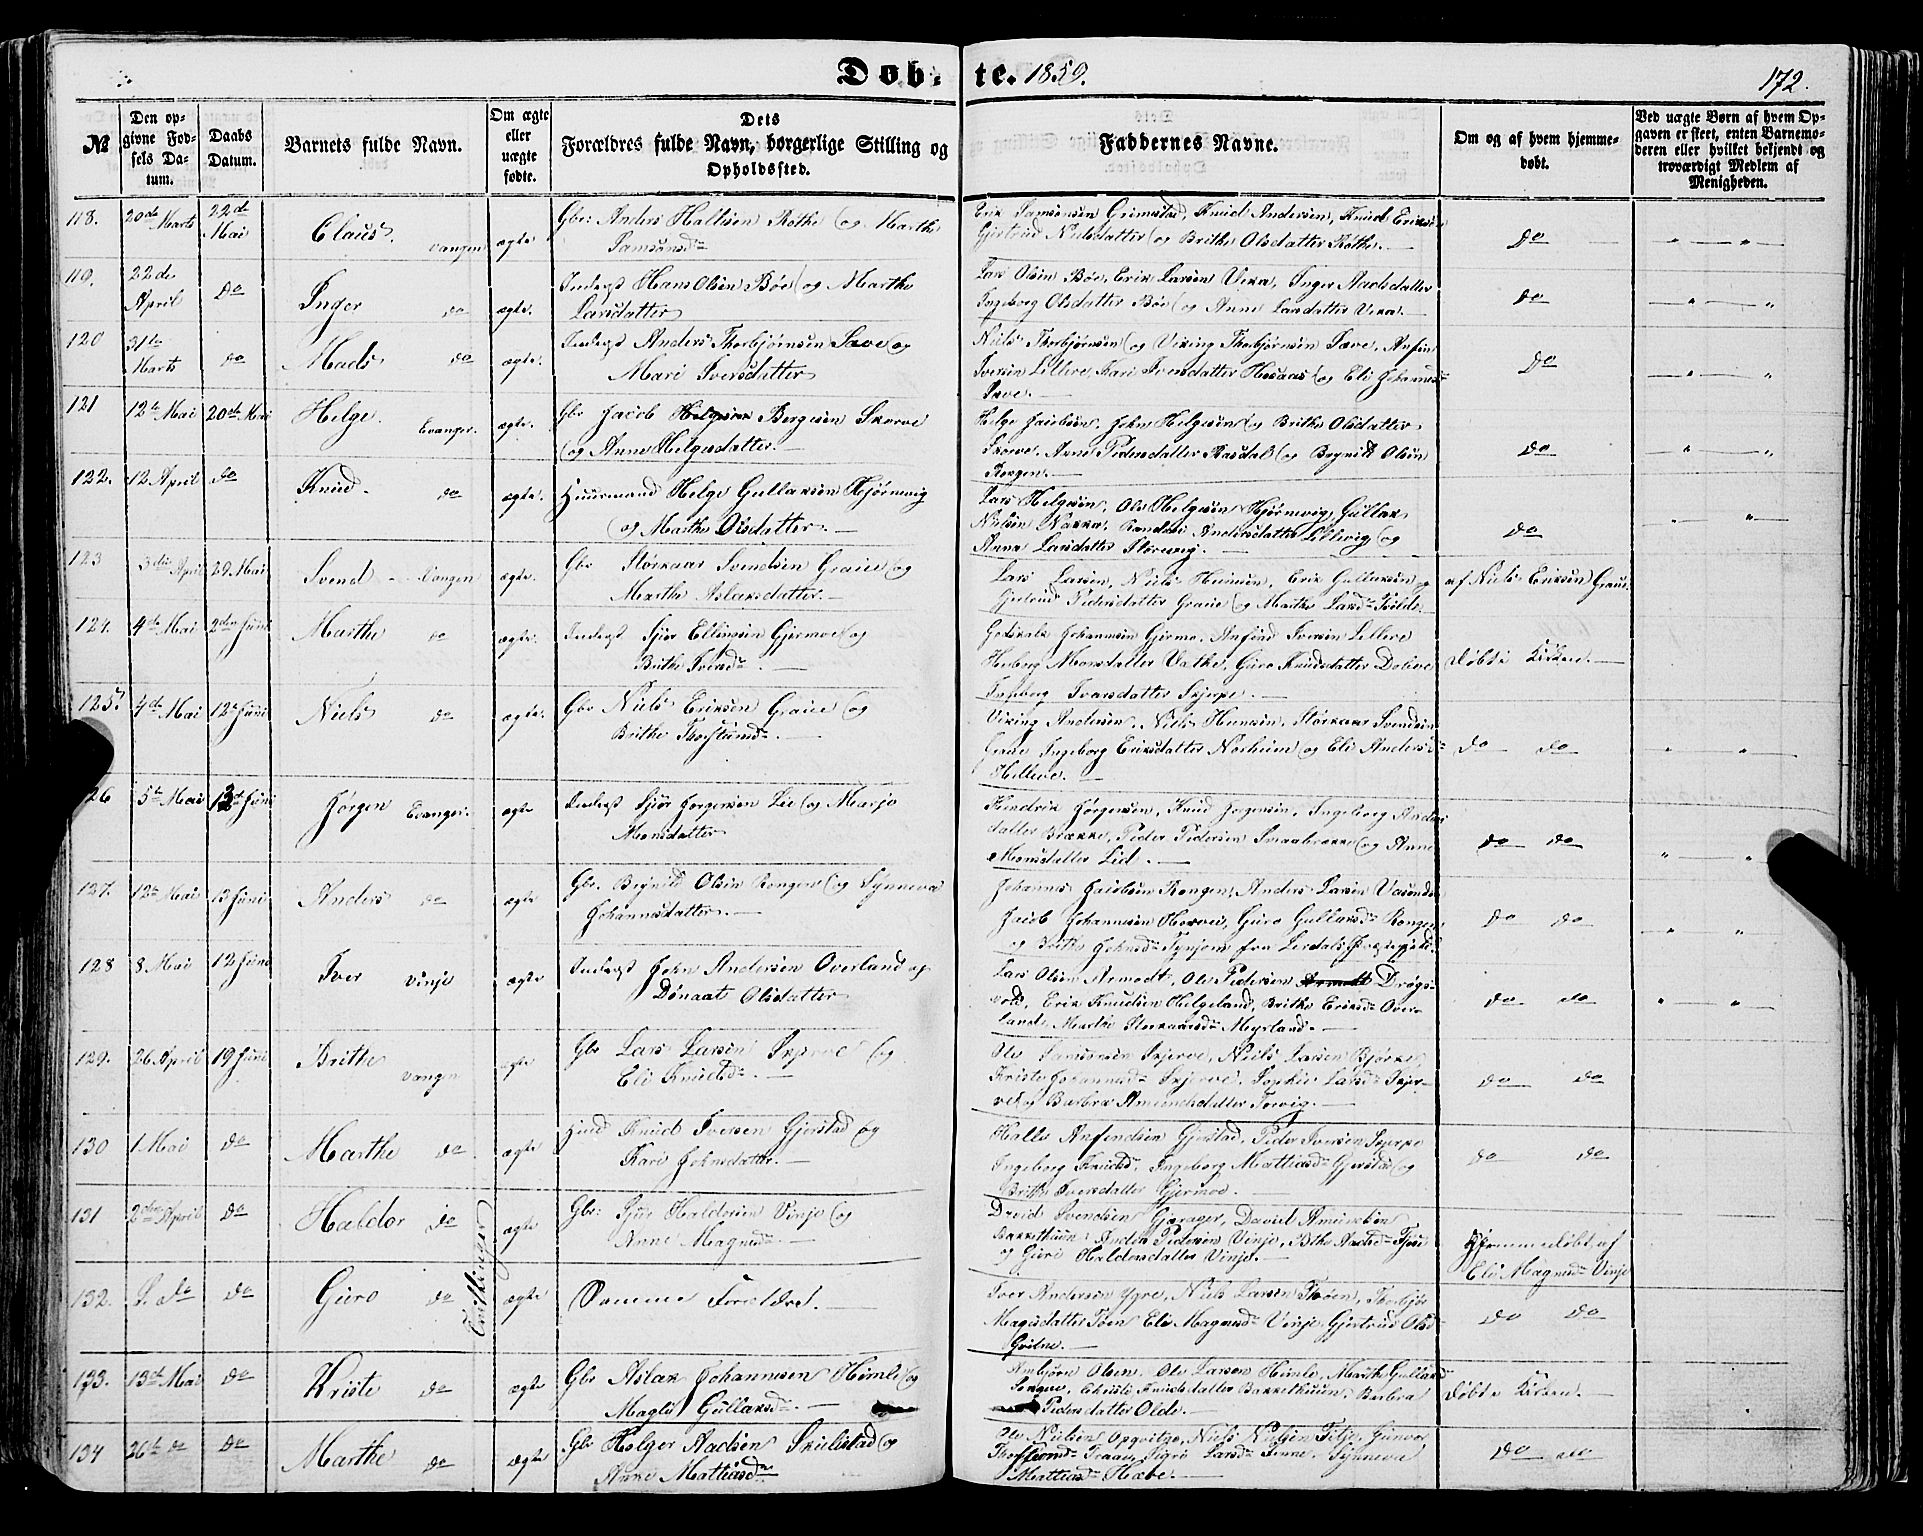 Døb-te. 1859.
172.
№
Den opgivne Fødsels Datum.
Daabs Datum.
Barnets fulde Navn.
Om ægte eller uægte fødte.
Dets Forældres fulde Navn, borgerlige Stilling og Opholdssted.
Faddernes Navne.
Om og af hvem hjemmedøbt.
Ved uægte Børn af hvem Opgaven er skeet, enten Barnemoderen eller hvilket bekjendt og troværdigt Medlem af Menigheden.
118. 20de Marts 22de Mai Claus. Vangen ægte. Gbr: Anders Hallsen Rothe og Marthe
Samsonsd.
Erik Samsonsen Grimstad, Knud Andersen, Knud Eriksen
Gjertrud Nielsdatter og Brithe Olsdatter Rothe. Do
119. 22de April Do Inger do ægte. Inderst Hans Olsen Bøe og Marthe
Larsdatter
Lars Olsen Bøe, Erik Larsen
Ingeborg Olsdatter Bøe og Anne Larsdatter Do
120 31te Marts do Mads do ægte. Inderst Anders Thorbjørnsen Save og
Mari Iversdatter
Niels Thorbjørnsen og Viking Thorbjørnsen Save, Anfin
Iversen Lilleve, Kari Iversdatter og Eli Johannesd.
Save. Do
121 12te Mai 20de Mai Helge. Evanger. ægte. Gbr Jacob Bergesen Skorve
og Anne Helgesdatter.
Helge Jacobsen, John Helgesen og Brithe Olsdatter
Skorve, Anne Pedersdatter Rasdal og Brynild Olsen
Rongen. Do
122. 12 April do Knud. do ægte. Huusmand Helge Gullaksen Hjørnevig
og Marthe Olsdatter.
Lars Helgesen, Ole Helgesen Hjørnevig, Gullak
Nielsen Andersdatter Lillevig og
Anna Larsdatter Do
123 3die April 29 Mai Svend Vangen ægte. Gbr Størkaar Svendsen Graue og
Marthe Aslaksdatter.
Lars Larsen, Niels Erik Gullaksen og
Gjertrud Pedersdatter Graue og Marthe Larsd. af Niels Eriksen Graue
124. 4de Mai 2den Juni Marthe do ægte. Inderst Sjur Ellingsen Gjermoe og
Brithe Iversd.
Godskalk Johannesen Gjermo, Anfind Iversen Lilleve
Herborg Monsdatter Guro Knudsdatter
Ingeborg Iversdatter Skjerpe. Døbt i Kirken.
125. 4de Mai 12te Juni Niels do ægte. Gbr Niels Eriksen Graue og
Brithe Thorsteinsd.
Viking Andersen, Niels Størkaar Svendsen
Graue Ingeborg Eriksdatter Norheim og Eli Andersd.
Hilleve. Do Do
126 5te Mai 13de Juni Jørgen Evanger. ægte Inderst Sjur Jørgensen Lie og Marjo
Monsdatter
Hendrik Jørgensen, Knud Jørgensen, Ingeborg Anders
datter Brække, Peder Pedersen og Anne
Monsdatter Lid. Do Do
127. 12te Mai 13 Juni Anders do ægte Gbr. Brynild Olsen Rongen og Synneva
Johannesdatter.
Johannes Jacobsen Rongen, Anders Larsen
Jacob Johannesen Guro Gullaksd. Rongen
og Brithe Johnsd. Tynjom fra Lerdals Præstegjeld. Do Do
128 8 Mai 12 Juni Iver Vinje ægte Inderst John Andersen Overland og
Donaat Olsdatter
Lars Olsen Armodt, Ole Pedersen Drøgs-
vold, Erik Knudsen Helgeland, Brithe Eriksd. Over-
land, Marthe Størkaarsd. Myrland. Do do
129. 26 April 19 Juni Brithe Vangen ægte Gbr Lars Larsen Skjerve og
Eli Knudsd.
Ole Skjerve, Niels Larsen Bjørke,
Kriste Johannesd. Skjerve, Sophie Larsd. Skjer-
ve og Barbra Amundsdatter do do
130 1 Mai do Marthe do ægte Knud Iversen Gjerstad og
Kari Johnsdatter.
Halle Anfindsen Gjerstad, Peder Iversen Skjerpe
Ingeborg Knudsd. Ingeborg Mathiasd. Gjerstad og
Brithe Iversdatter Gjermoe. do do
131 2den April do Haldor do ægte Gbr: Sjur Haldorsen Vinje og
Anne Magnusd.
David Svendsen Gjerager, David Amundsen
Bakkethuun, Anders Pedersen Vinje,
og Guri Haldorsdatter Vinje. Hjemmedøbt af
Eli Magnusd. Vinje
Tvillinger
132. S. do do Guro do ægte Samme Forældre.
Iver Andersen Ygre, Niels Larsen
datter Eli Magnusd. Vinje, Gjertrud Olsd.
do do
133. 13de Mai do Kriste do ægte Gbr Aslak Johannesen Himle og
Magla Gullaksd.
Olsen, Ole Larsen Himle, Marthe Gullaksd.
Christi Knudsdatter Bakkethuun, Barbra
Pedersdatter Olde. Døbt i Kirken.
134 26te do do Marthe do ægte Gbr Holger Aadsen Skulestad og
Anne Mathiasd.
Ole Nielsen Opqvitne, Niels Nielsen Gunvor
Larsd. Synneva
Mathiasd. do do